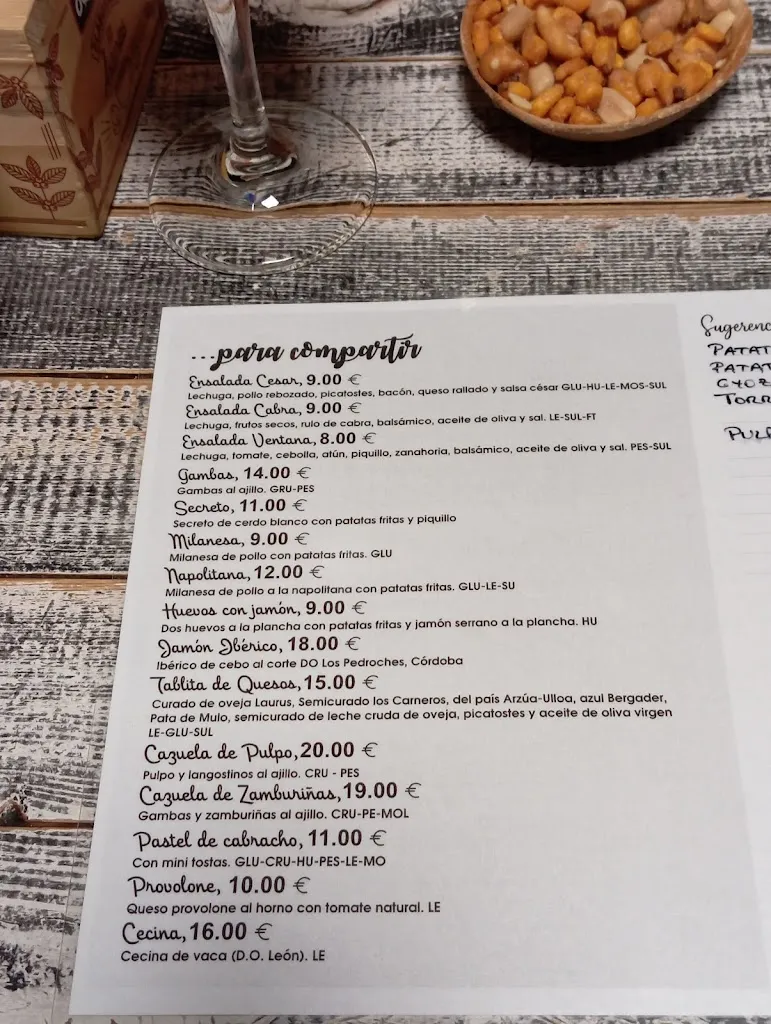 ...para compartir
Ensalada Cesar, 9.00 €
Lechuga, pollo rebozado, picatostes, bacón, queso rallado y salsa césar GLU-HU-LE-MOS-SUL
Ensalada Cabra, 9.00 €
Lechuga, frutos secos, rulo de cabra, balsámico, aceite de oliva y sal. LE-SUL-FT
Ensalada Ventana, 8.00 €
Lechuga, tomate, cebolla, atún, piquillo, zanahoria, balsámico, aceite de oliva y sal. PES-SUL
Gambas, 14.00 €
Gambas al ajillo. GRU-PES
Secreto, 11.00 €
Secreto de cerdo blanco con patatas fritas y piquillo
Milanesa, 9.00 €
Milanesa de pollo con patatas fritas. GLU
Napolitana, 12.00 €
Milanesa de pollo a la napolitana con patatas fritas. GLU-LE-SU
Huevos con jamón, 9.00 €
Dos huevos a la plancha con patatas fritas y jamón serrano a la plancha. HU
Jamón Ibérico, 18.00 €
Ibérico de cebo al corte DO Los Pedroches, Córdoba
Tablita de Quesos, 15.00 €
Curado de oveja Laurus, Semicurado los Carneros, del país Arzúa-Ulloa, azul Bergader,
Pata de Mulo, semicurado de leche cruda de oveja, picatostes y aceite de oliva virgen
LE-GLU-SUL
Cazuela de Pulpo, 20.00 €
Pulpo y langostinos al ajillo. CRU - PES
Cazuela de Zamburiñas, 19.00 €
Gambas y zamburiñas al ajillo. CRU-PE-MOL
Pastel de cabracho, 11.00 €
Con mini tostas. GLU-CRU-HU-PES-LE-MO
Provolone, 10.00 €
Queso provolone al horno con tomate natural. LE
Cecina, 16.00 €
Cecina de vaca (D.O. León). LE
Sugerenc
PATAT
PATAT
GYOZ
TORR